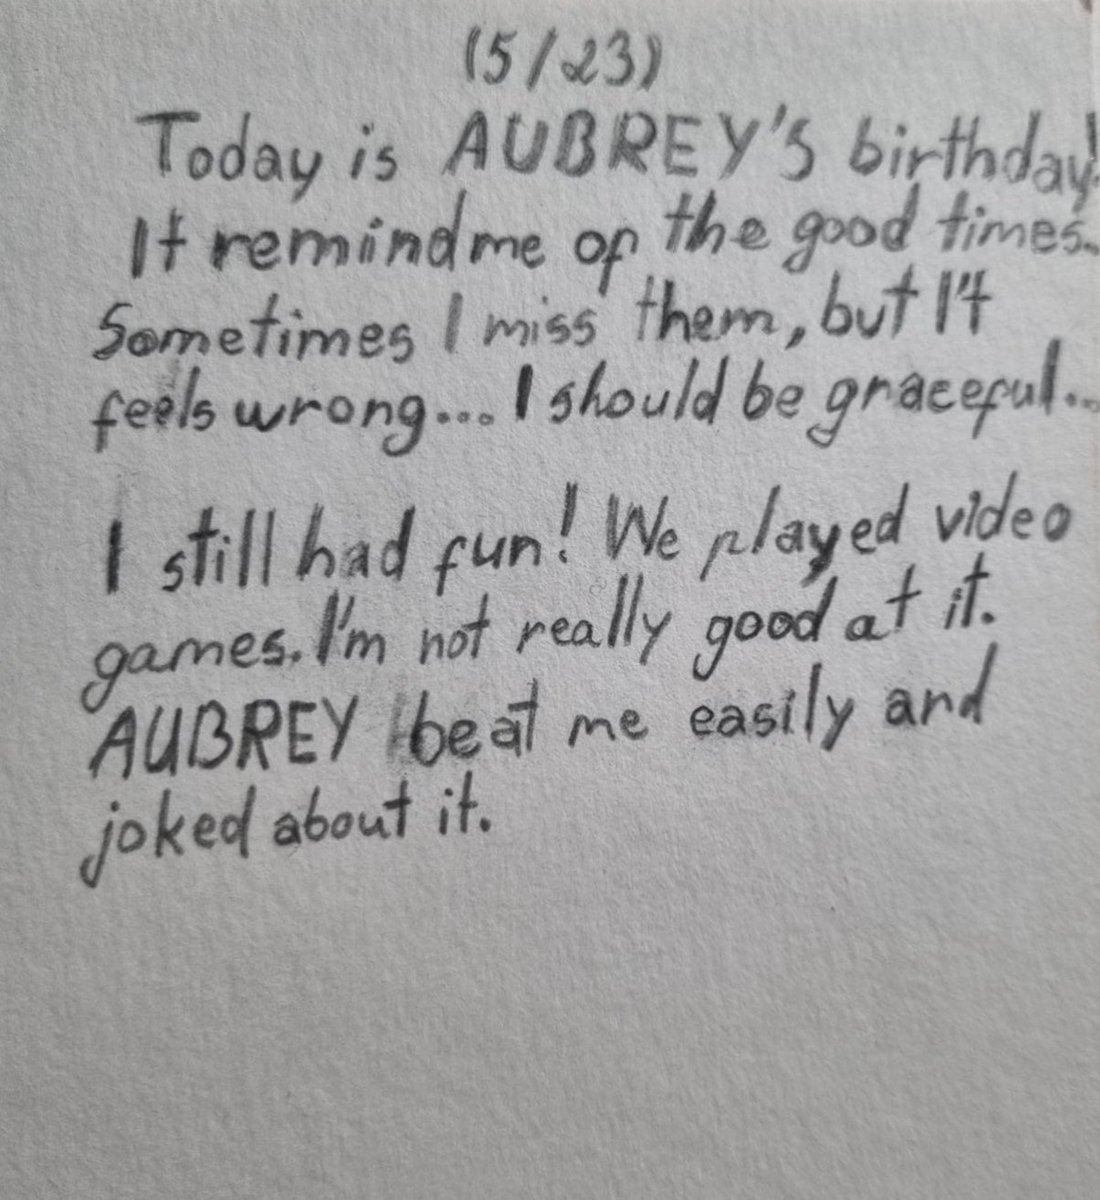 (5/23)
Today is AUBREY'S birthday!
It remind me of the good times..
Sometimes I miss them, but I't
feels wrong... I should be graceful...
I still had fun! We played video
games. I'm not really good at it.
AUBREY beat me easily and
joked about it.